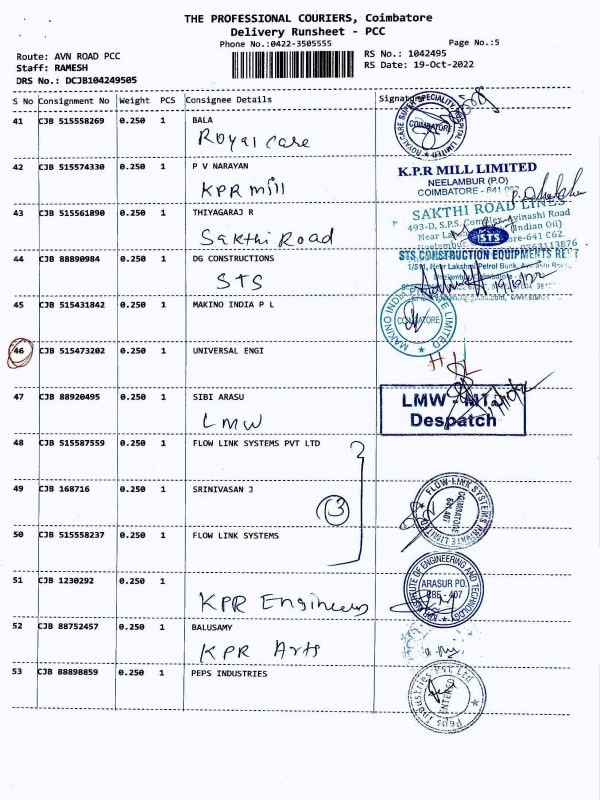 THE PROFESSIONAL COURIERS, Coimbatore
Delivery Runsheet - PCC
Phone No.:0422-3505555
Page No.:5
Route: AVN ROAD PCC
RS No.: 1042495
Staff: RAMESH
RS Date: 19-Oct-2022
DRS No.: DCJB104249505
S No Consignment No Weight PCS Consignee Details Signature
41 CJB 515558269 0.250 1 BALA
Royal care
COIMBATORE
42 CJB 515574330 0.250 1 P V NARAYAN
KPR mill
K.P.R MILL LIMITED
NEELAMBUR (P.O)
COIMBATORE - 641
43 CJB 515561890 0.250 1 THIYAGARAJ R
Sakthi Road
SAKTHI ROAD LINES
493-D, S.P.S. Complex, Avinashi Road
(Indian Oil)
44 CJB 88890984 0.250 1 DG CONSTRUCTIONS
STS
STS
STS CONSTRUCTION EQUIPMENTS
45 CJB 515431842 0.250 1 MAKINO INDIA P L
MAKINO INDIA PRIVATE LIMITED
COIMBATORE
46 CJB 515473202 0.250 1 UNIVERSAL ENGI
47 CJB 88920495 0.250 1 SIBI ARASU
LMW
LMW - MTD
Despatch
48 CJB 515587559 0.250 1 FLOW LINK SYSTEMS PVT LTD
49 CJB 168716 0.250 1 SRINIVASAN J
3
FLOW LINK SYSTEMS PRIVATE LIMITED
COIMBATORE
641 407
50 CJB 515558237 0.250 1 FLOW LINK SYSTEMS
51 CJB 1230292 0.250 1
KPR Engineers
KPR INSTITUTE OF ENGINEERING AND TECHNOLOGY
ARASUR PO.
52 CJB 88752457 0.250 1 BALUSAMY
KPR Arts
53 CJB 88898859 0.250 1 PEPS INDUSTRIES
Peps Industries Pvt Ltd